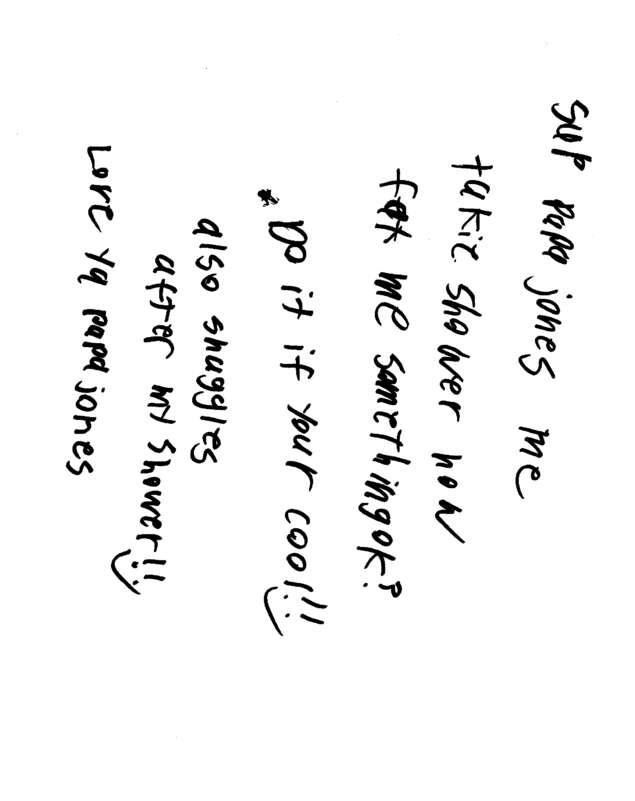 sup papa jones me
takiz shower now
fax me somethingok?
* Do it if your cool!!:)
also snuggles
after my shower!!:)
Love ya papa jones